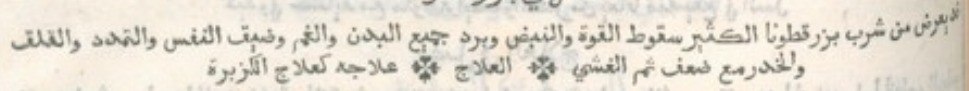 قد يعرض من شرب بزر قطونا الكثير سقوط القوة والنبض وبرد جميع البدن والغم وضيق النفس والتمدد والقلق
والخدر مع ضعف ثم الغشي ❖ العلاج ❖ علاجه كعلاج الكزبرة